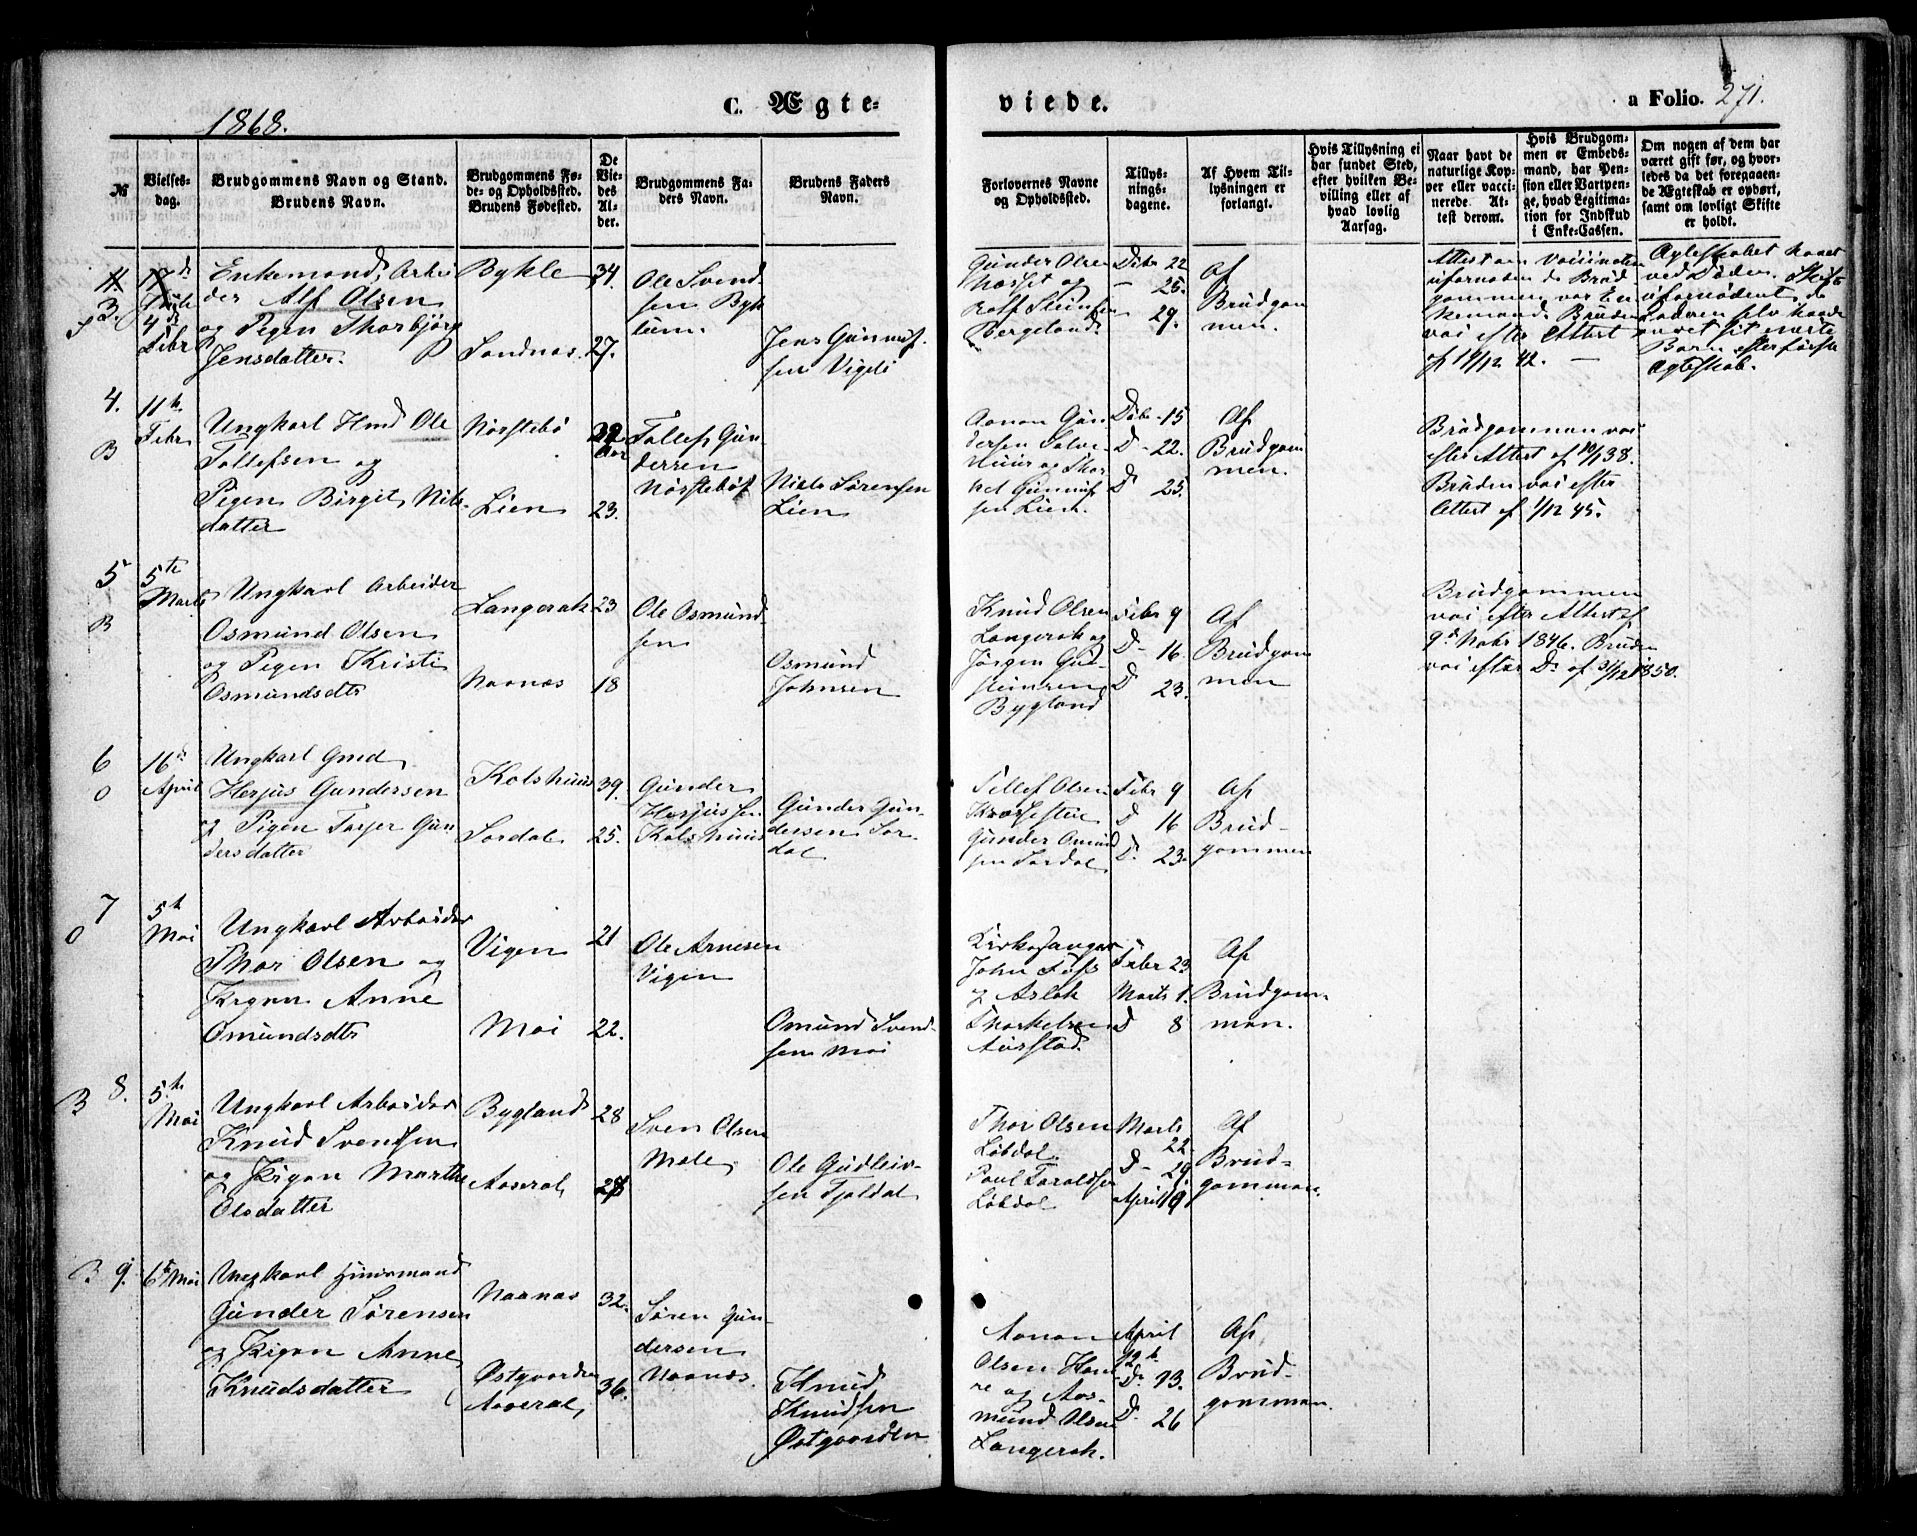 1868.
C. Ægte-
viede.
a Folio. 271.
№
Vielses-
dag.
Brudgommens Navn og Stand.
Brudens Navn.
Brudgommens Fø-
de- og Opholdssted.
Brudens Fødested.
De
Vie-
des
Al-
der.
Brudgommens Fa-
ders Navn.
Brudens Faders
Navn.
Forlovernes Navne
og Opholdssted.
Tillys-
nings-
dagene.
Af Hvem Til-
lysningen er
forlangt.
Hvis Tillysning ei
har fundet Sted,
efter hvilken Be-
villing eller af
hvad lovlig
Aarsag.
Naar havt de
naturlige Kop-
per eller vacci-
nerede. At-
test derom.
Hvis Brudgom-
men er Embeds-
mand, har Pen-
sion eller Vartpen-
ge, hvad Legitima-
tion for Indskud
i Enke-Cassen.
Om nogen af dem har
været gift før, og hvor-
ledes da det foregaaen-
de Ægteskab er ophørt,
samt om lovligt Skifte
er holdt.
3.
4de
Febr
Enkemand, Arbei
der Alf Olsen
og Pigen Thorbjørg
Jensdatter.
Bykle
Sandnæs
34.
27.
Ole Svend-
sen Byk
lum.
Jens Gunnuf-
sen Vigeli
Gunder Olsen
Næsset og
Rolf Steinsen
Bergeland
Debr 22
- 26.
29.
Af
Brudgom
men.
Attest om Vaccination
ufornøden da Brud
gommen var En
kemand. Bruden
vac efter Attest
af 19/12 42. —
Ægteskabet hævet
ved Døden. Skifte
ufornødent, da
Børn efter første
Ægteskab.
4.
B
11te
Febr
Ungkarl Ole
Tollefsen og
Pigen Birgit Nils-
datter
Nørstebø
Lien
23.
Tollef Gun
dersen
Nørstebø
Niels Sørensen
Lien
Aanon Gun
dersen
og Thor
Gunnuf
sen Lien.
Debr 15
D - 22.
D 25.
Af
Brudgom
men.
Brudgommen vac
efter Attest af 10/1 38.
Bruden vac efter
Attest af 1/12 45.
5
B
5te
Marts
Ungkarl Arbeider
Osmund Olsen
og Pigen Kristi
Osmundsdtr
Langerak
Naanæs
23
18
Ole Osmund-
sen
Osmund
Johnsen
Knud Olsen
Langerak og
Jørgen Gun-
steinsen
Bygland
Febr 9
D- 16.
D 23.
Af
Brudgom
men
Brudgommen
vac efter Attest af
9de Novbr 1846. Bruden
vac efter Do af 31/12 1850.
6
O
16de
April
Ungkarl Gmd
Herjus Gundersen
og Pigen Tarjer Gun
dersdatter
Kolshuus
Sordal
39.
25.
Gunder
Herjussen
Kolshuus
Gunder Gun-
dersen Sor
dal
Tellef Olsen
Gunder Omund
sen Sordal
Febr 9
D 16
D. 23.
Af
Brud-
gommen
7
O
5te
Mai
Ungkarl Arbeider
Thor Olsen og
Pigen Anne
Omundsdtr
Vigen
Moi
21
22.
Ole Arnesen
Vigen
Omund Svend-
sen Moi
Kirkesanger
John Tufs
og Aslak
Thorkelsen
Austad.
Febr 23
Marts 1.
D 8
Af
Brudgom-
men.
B
8.
5te
Mai
Ungkarl Arbeider
Knud Svendsen
og Pigen Marthe
Olsdatter
Bygland
Aaseral
28
Sven Olsen
Mole
Ole Gudleiv-
sen Fjoldal
Thor Olsen
Løbdal
Paul Taraldsen
Løbdal
Marts
22.
D - 29.
April
Af
Brud-
gommen.
B
9.
6te Mai
Ungkarl Huusmand
Gunder Sørensen
og Pigen Anne
Knudsdatter
Naanæs
Østgaarden
Aaseral,
32.
36.
Søren Gun-
dersen
Naanæs.
Knud
Knudsen
Østgaarden
Aanon
Olsen
og Aas-
mund Olsen
Langerak.
April
12te
D 13.
D. 26
Af
Brud-
gommen.